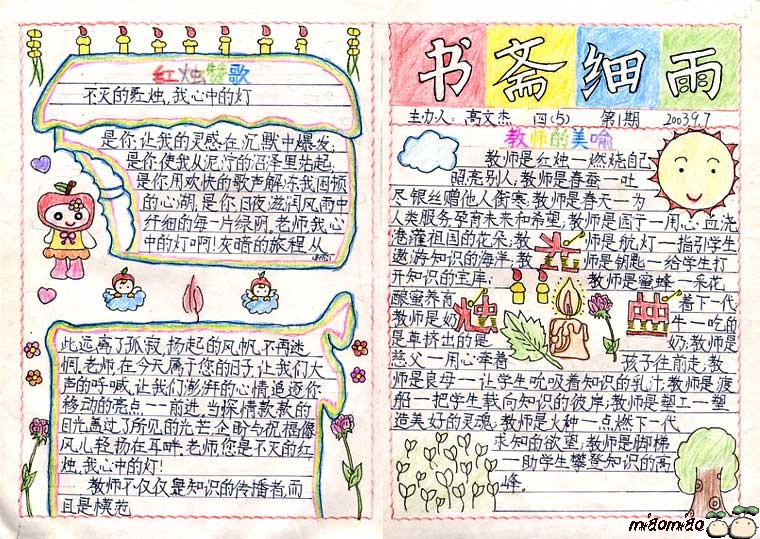 红烛赞歌
不灭的红烛,我心中的灯
是你,让我的灵感在沉默中爆发;
是你使我从泥泞的沼泽里站起;
是你用欢快的歌声解冻我困顿
的心湖,是你日夜滋润风雨中
纤细的每一片绿阴,老师,我心
中的灯啊!灰暗的旅程,从
此远离了孤寂,扬起的风帆,不再迷
惘,老师,在今天属于您的日子,让我们大
声的呼喊,让我们澎湃的心情追逐你
移动的亮点,一一前进,当深情款款的
目光,盖过了所见的光芒,企盼与祝福像
风儿轻扬在耳畔,老师,您是不灭的红
烛,我心中的灯!
教师不仅仅是知识的传播者,而
且是模范
书斋细雨
主办人:高文杰 四(5) 第1期 2003.9.7
教师的美喻
教师是红烛—燃烧自己
照亮别人;教师是春蚕—吐
尽银丝赠他人御寒;教师是春天—为
人类服务,孕育未来和希望,教师是园丁—用心血浇
灌祖国的花朵;教师是航灯—指引学生
遨游知识的海洋;教师是钥匙—给学生打
开知识的宝库;教师是蜜蜂—采花
酿蜜养育着下一代
教师是奶牛—吃的
是草挤出的是奶;教师是
慈父—用心牵着孩子往前走,教
师是良母—让学生吮吸着知识的乳汁,教师是渡
船—把学生载向知识的彼岸;教师是塑工—塑
造美好的灵魂;教师是火种—点燃下一代
求知的欲望;教师是脚梯
—助学生攀登知识的高
峰。
miaomiao